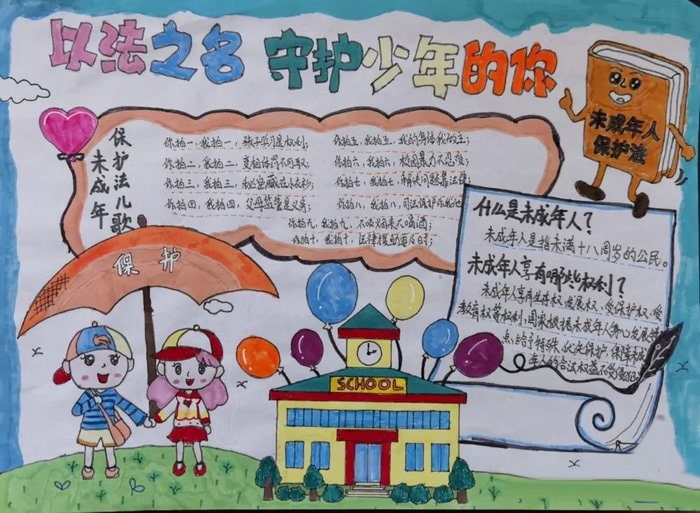 以法之名 守护少年的你
未成年人
保护法
未成年
保护法儿歌
你拍一,我拍一,孩子学习是权利;
你拍二,我拍二,
你拍三,我拍三,
你拍四,我拍四,父母监管是义务;
你拍五,我拍五,
你拍六,我拍六,校园暴力不忍难;
你拍七,我拍七,解决问题靠法律;
你拍八,我拍八,司法保护
你拍九,我拍九,不吸烟来不喝酒;
你拍十,我拍十,法律援助要及时;
保护
什么是未成年人?
未成年人是指未满十八周岁的公民。
未成年人享有哪些权利?
未成年人享有生存权、发展权、受保护权、受
等权利,国家根据未成年人身心发展特
点给予特殊、优先保护,保障未成
年人的合法权益不受侵犯。
SCHOOL